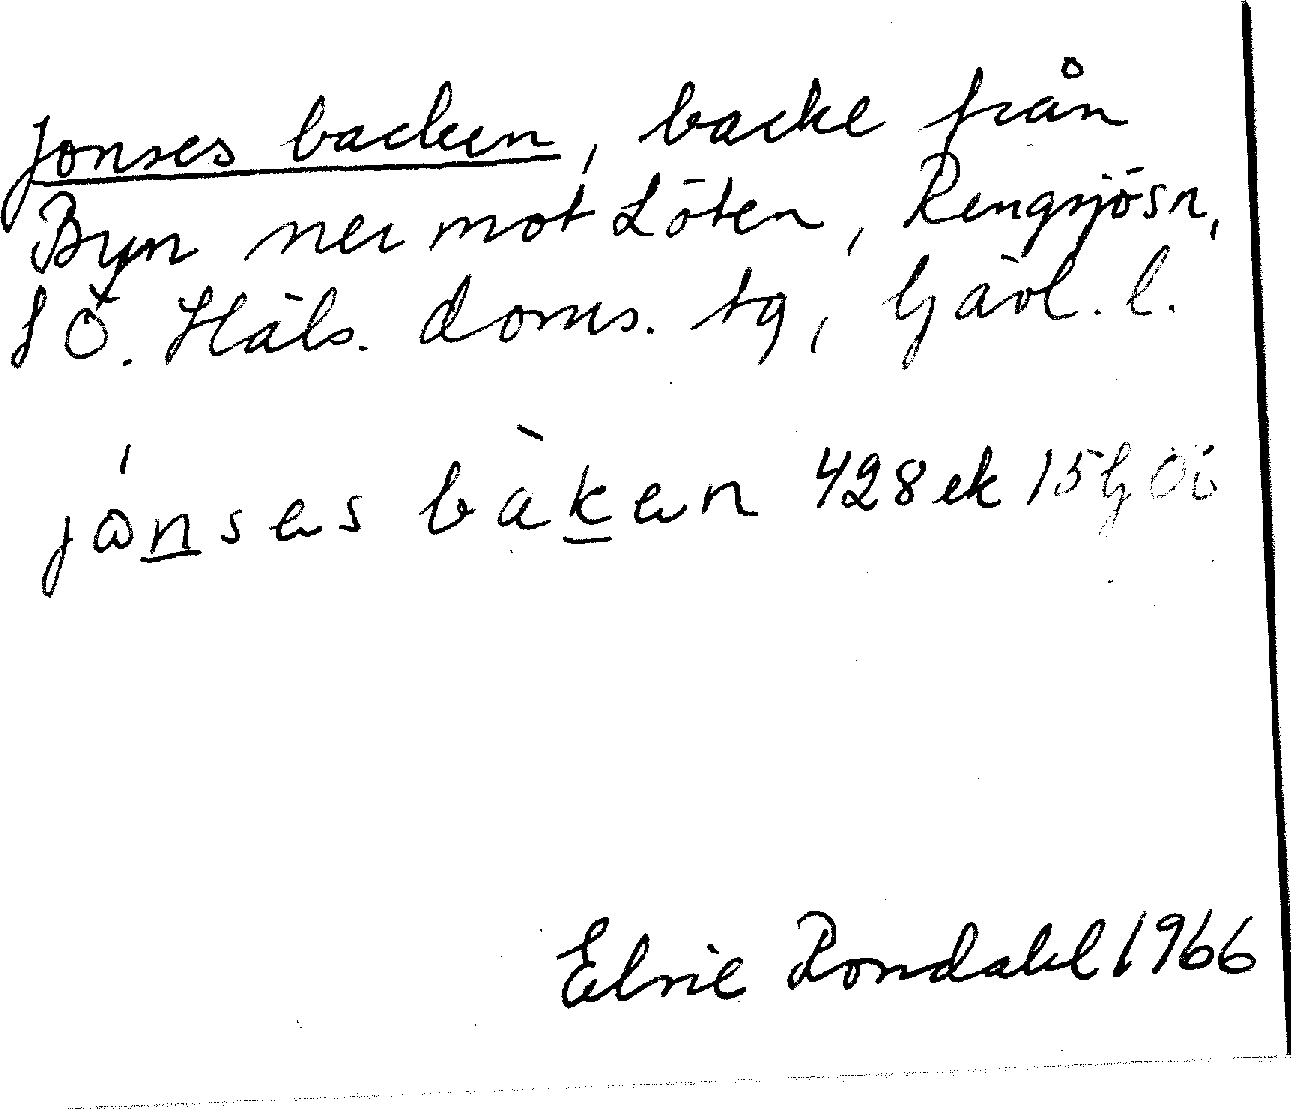 Jonses backen, backe från
Byn ner mot Löten, Rengsjö sn,
SÖ. Häls. doms. tg, Gävl. l.
jònses bàken 428 ek 15 G Öb
Elvie Rondahl 1966